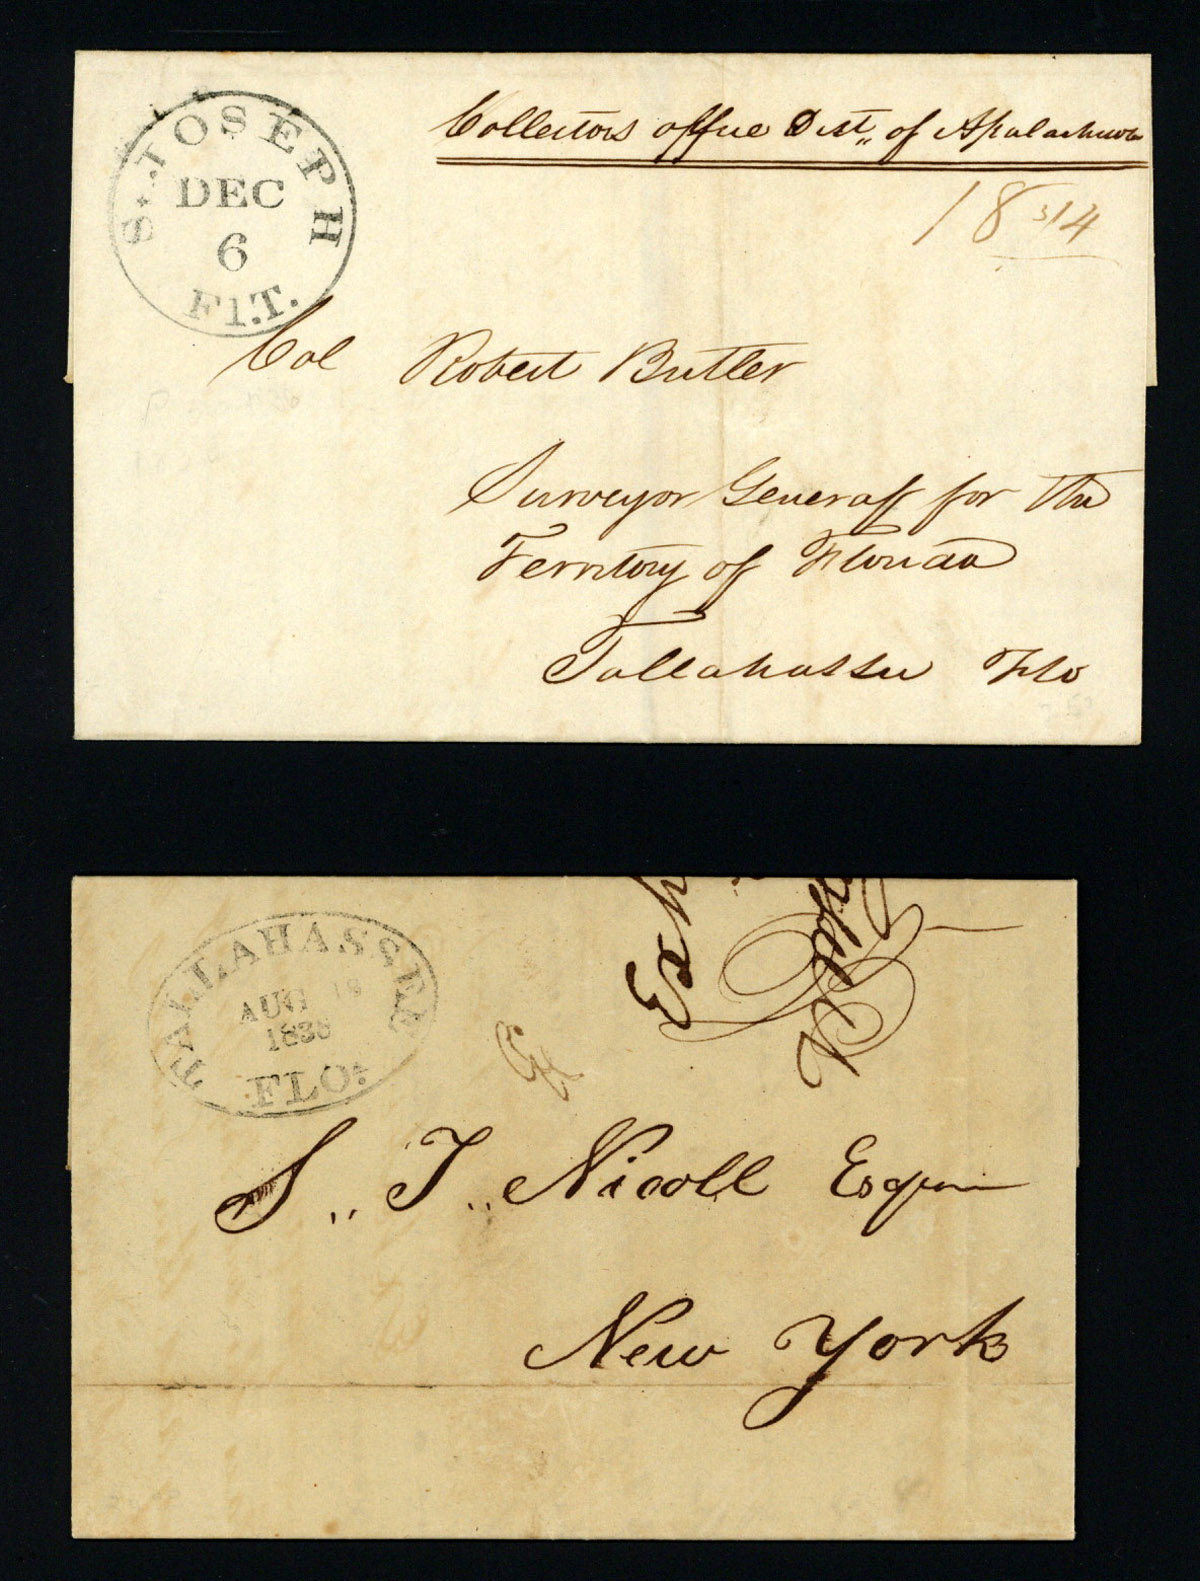 St. JOSEPH
DEC
6
Fl.T.
Collectors office Dist,, of Apalachicola
18 3/4
Col Robert Butler
Surveyor General for the
Territory of Florida
Tallahassee Flo
TALLAHASSEE
AUG
1838
FLO.
Exh
S,, T,, Nicoll Esquire
New York